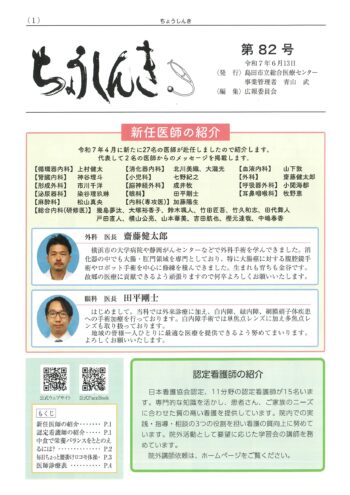 (1)
ちょうしんき
ちょうしんき
第82号
令和7年6月13日
(発 行) 島田市立総合医療センター
事業管理者 青山 武
(編 集) 広報委員会
新任医師の紹介
令和7年4月に新たに27名の医師が赴任しましたので紹介します。
代表して2名の医師からのメッセージを掲載します。
【循環器内科】 上村健太 【消化器内科】 北川美織、大湯光 【血液内科】 山下敦
【腎臓内科】 神谷理斗 【小児科】 七野紀之 【外科】 齋藤健太郎
【形成外科】 市川千洋 【脳神経外科】 成井牧 【呼吸器外科】 小関海都
【泌尿器科】 染谷理玖紳 【眼科】 田平剛士 【耳鼻咽喉科】 牧野恵
【麻酔科】 松山真央 【内科(専攻医)】 加藤陽生
外科 医師 齋藤健太郎
横浜市の大学病院や静岡がんセンターなどで外科手術を学んできました。消
化器の中でも大腸・肛門領域を専門としており、特に大腸癌に対する腹腔鏡手
術やロボット手術を中心に修練を積んできました。生まれも育ちも金谷です。
故郷の医療に貢献できるよう頑張りますので何卒よろしくお願いいたします。
眼科 医長 田平剛士
はじめまして。当科では外来診療に加え、白内障、緑内障、網膜硝子体疾患
への手術加療を行っております。白内障手術では単焦点レンズに加え多焦点レ
ンズも取り扱っております。
地域の皆様一人ひとりに最適な医療を提供できるよう努めてまいります。
よろしくお願いいたします。
公式ウェブサイト
公式FaceBook
もくじ
新任医師の紹介‥‥‥‥P.1
認定看護師の紹介‥‥‥P.1
中食で栄養バランスをととのえ
るには?‥‥‥‥‥‥‥P.2
毎日ちょっと腰掛けロコモ体操‥P.3
医師診療表‥‥‥‥‥‥P.4
認定看護師の紹介
日本看護協会認定、11分野の認定看護師が15名いま
す。専門的な知識を活かし、患者さん、ご家族のニーズ
に合わせた質の高い看護を提供しています。院内での実
践・指導・相談の3つの役割を担い看護の質向上に努めて
います。院外活動として要望に応じた学習会の講師を務
めています。
院外講師依頼は、ホームページをご覧ください。